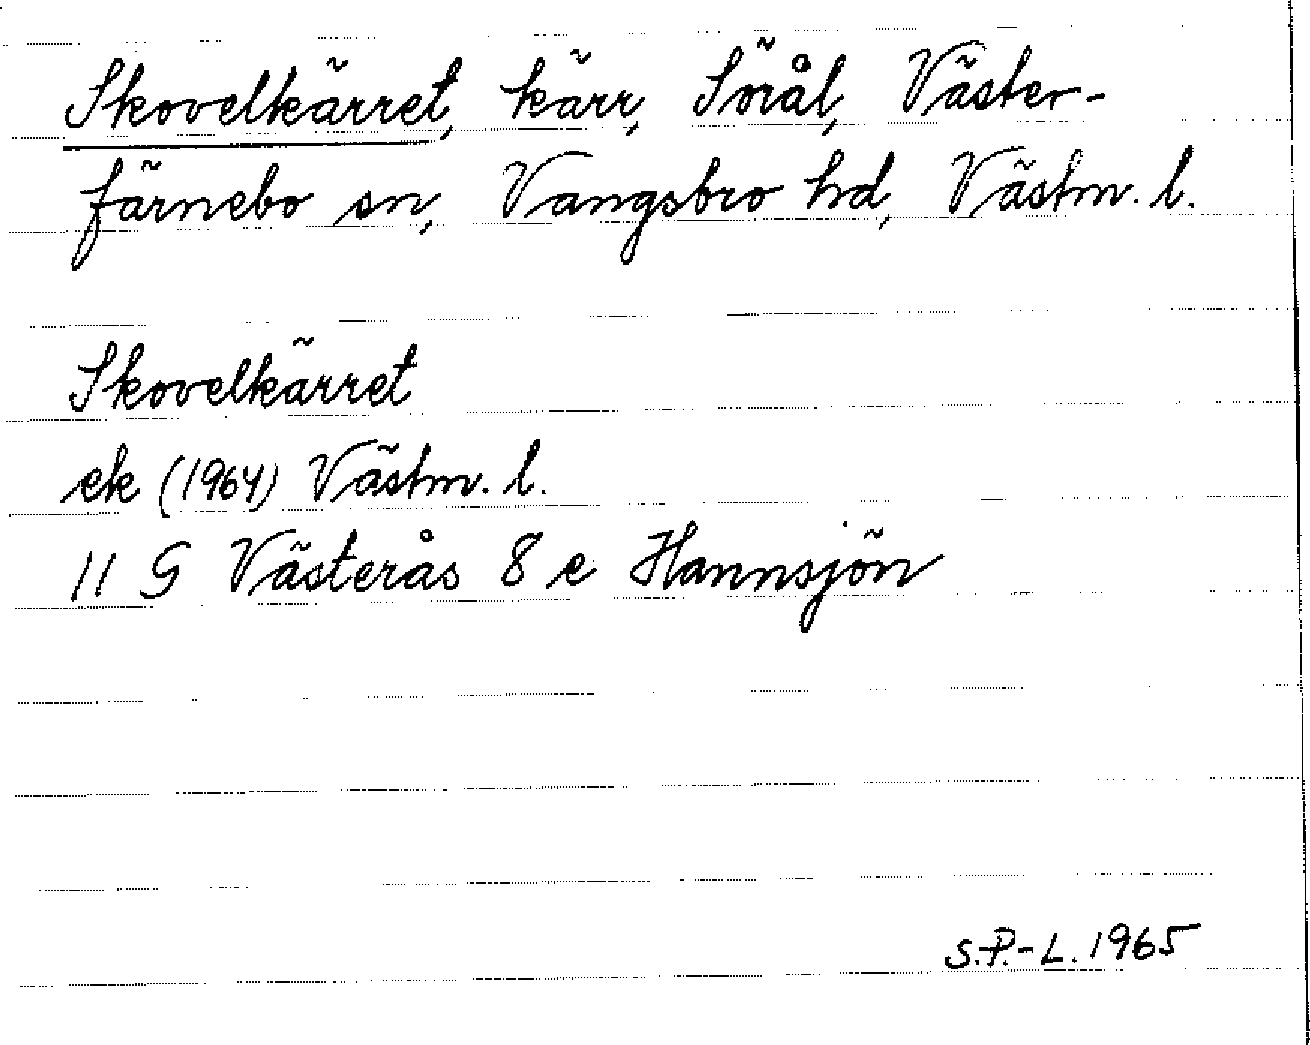 Skovelkärret, kärr, Sörål, Väster-
färnebo sn, Vangsbro hd, Västm. l.
Skovelkärret
ek (1964) Västm. l.
11 G Västerås 8 e Hannsjön
S.P.-L. 1965